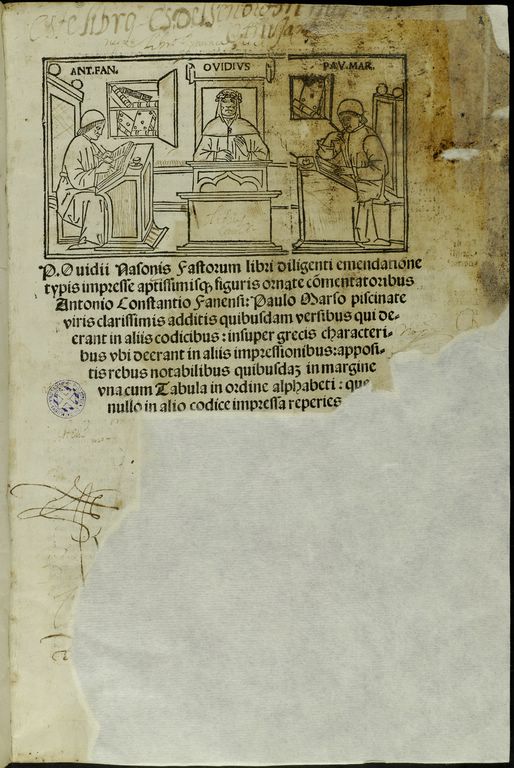 este libro es del señor
ANT.FAN. OVIDIVS PAV.MAR.
P. Ouidii Nasonis Fastorum libri diligenti emendatione
typis impresse aptissimisq; figuris ornate cōmentatoribus
Antonio Constantio Fanensi: Paulo Marso piscinate
viris clarissimis additis quibusdam versibus qui de-
erant in aliis codicibus: insuper grecis characteri-
bus vbi deerant in aliis impressionibus: apposi-
tis rebus notabilibus quibusdaʒ in margine
vna cum Tabula in ordine alphabeti: que
nullo in alio codice impressa reperies